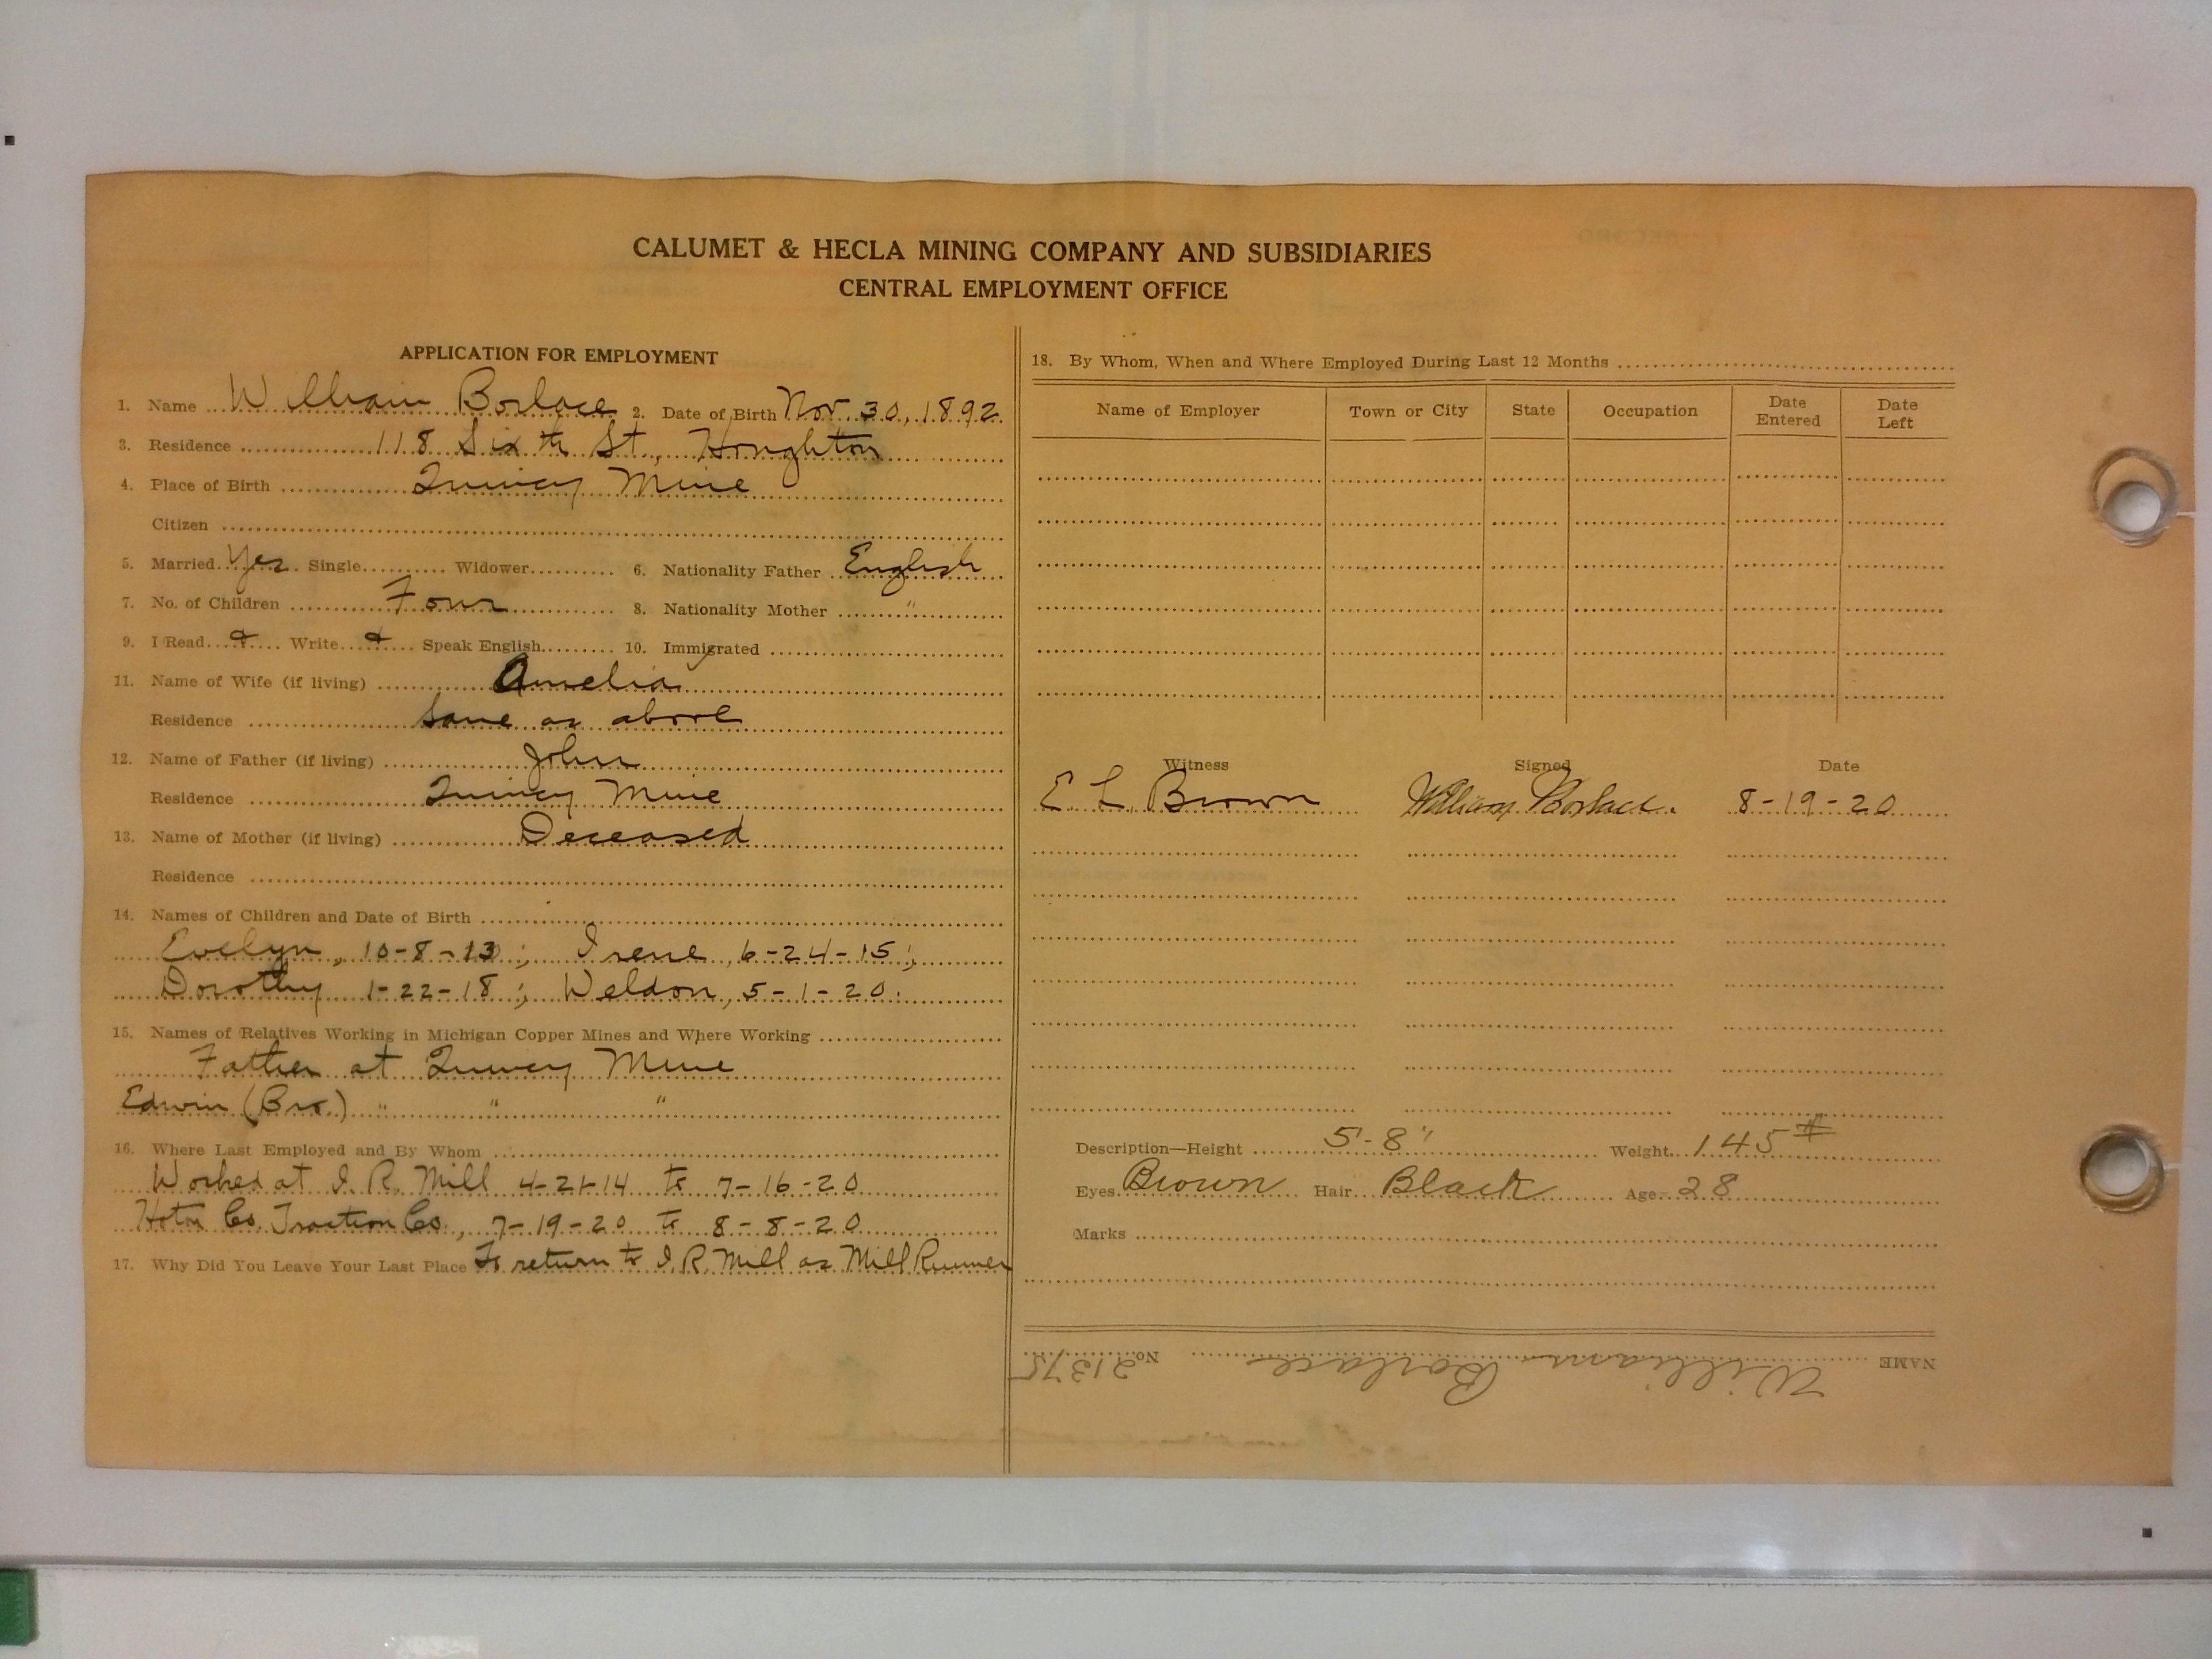 CALUMET & HECLA MINING COMPANY AND SUBSIDIARIES
CENTRAL EMPLOYMENT OFFICE
APPLICATION FOR EMPLOYMENT
1. Name William Borlace 2. Date of Birth Nov. 30, 1892
3. Residence 118 Sixth St., Houghton
4. Place of Birth Quincy Mine
Citizen
5. Married Yes Single Widower 6. Nationality Father English
7. No. of Children Four 8. Nationality Mother "
9. I Read & Write & Speak English 10. Immigrated
11. Name of Wife (if living) Amelia
Residence Same as above
12. Name of Father (if living) John
Residence Quincy Mine
13. Name of Mother (if living) Deceased
Residence
14. Names of Children and Date of Birth
Evelyn, 10-8-13; Irene, 6-24-15;
Dorothy 1-22-18; Weldon, 5-1-20.
15. Names of Relatives Working in Michigan Copper Mines and Where Working
Father at Quincy Mine
Edwin (Bro.) " " "
16. Where Last Employed and By Whom
Worked at I. R. Mill 4-21-14 to 7-16-20
Hoton Co. Traction Co., 7-19-20 to 8-8-20
17. Why Did You Leave Your Last Place To return to I. R. Mill as Mill Runner
18. By Whom, When and Where Employed During Last 12 Months
Name of Employer Town or City State Occupation Date Entered Date Left
Witness Signed Date
E. L. Brown William Borlace. 8-19-20
Description—Height 5'-8" Weight 145#
Eyes Brown Hair Black Age 28
Marks
NAME William Borlace No. 21375